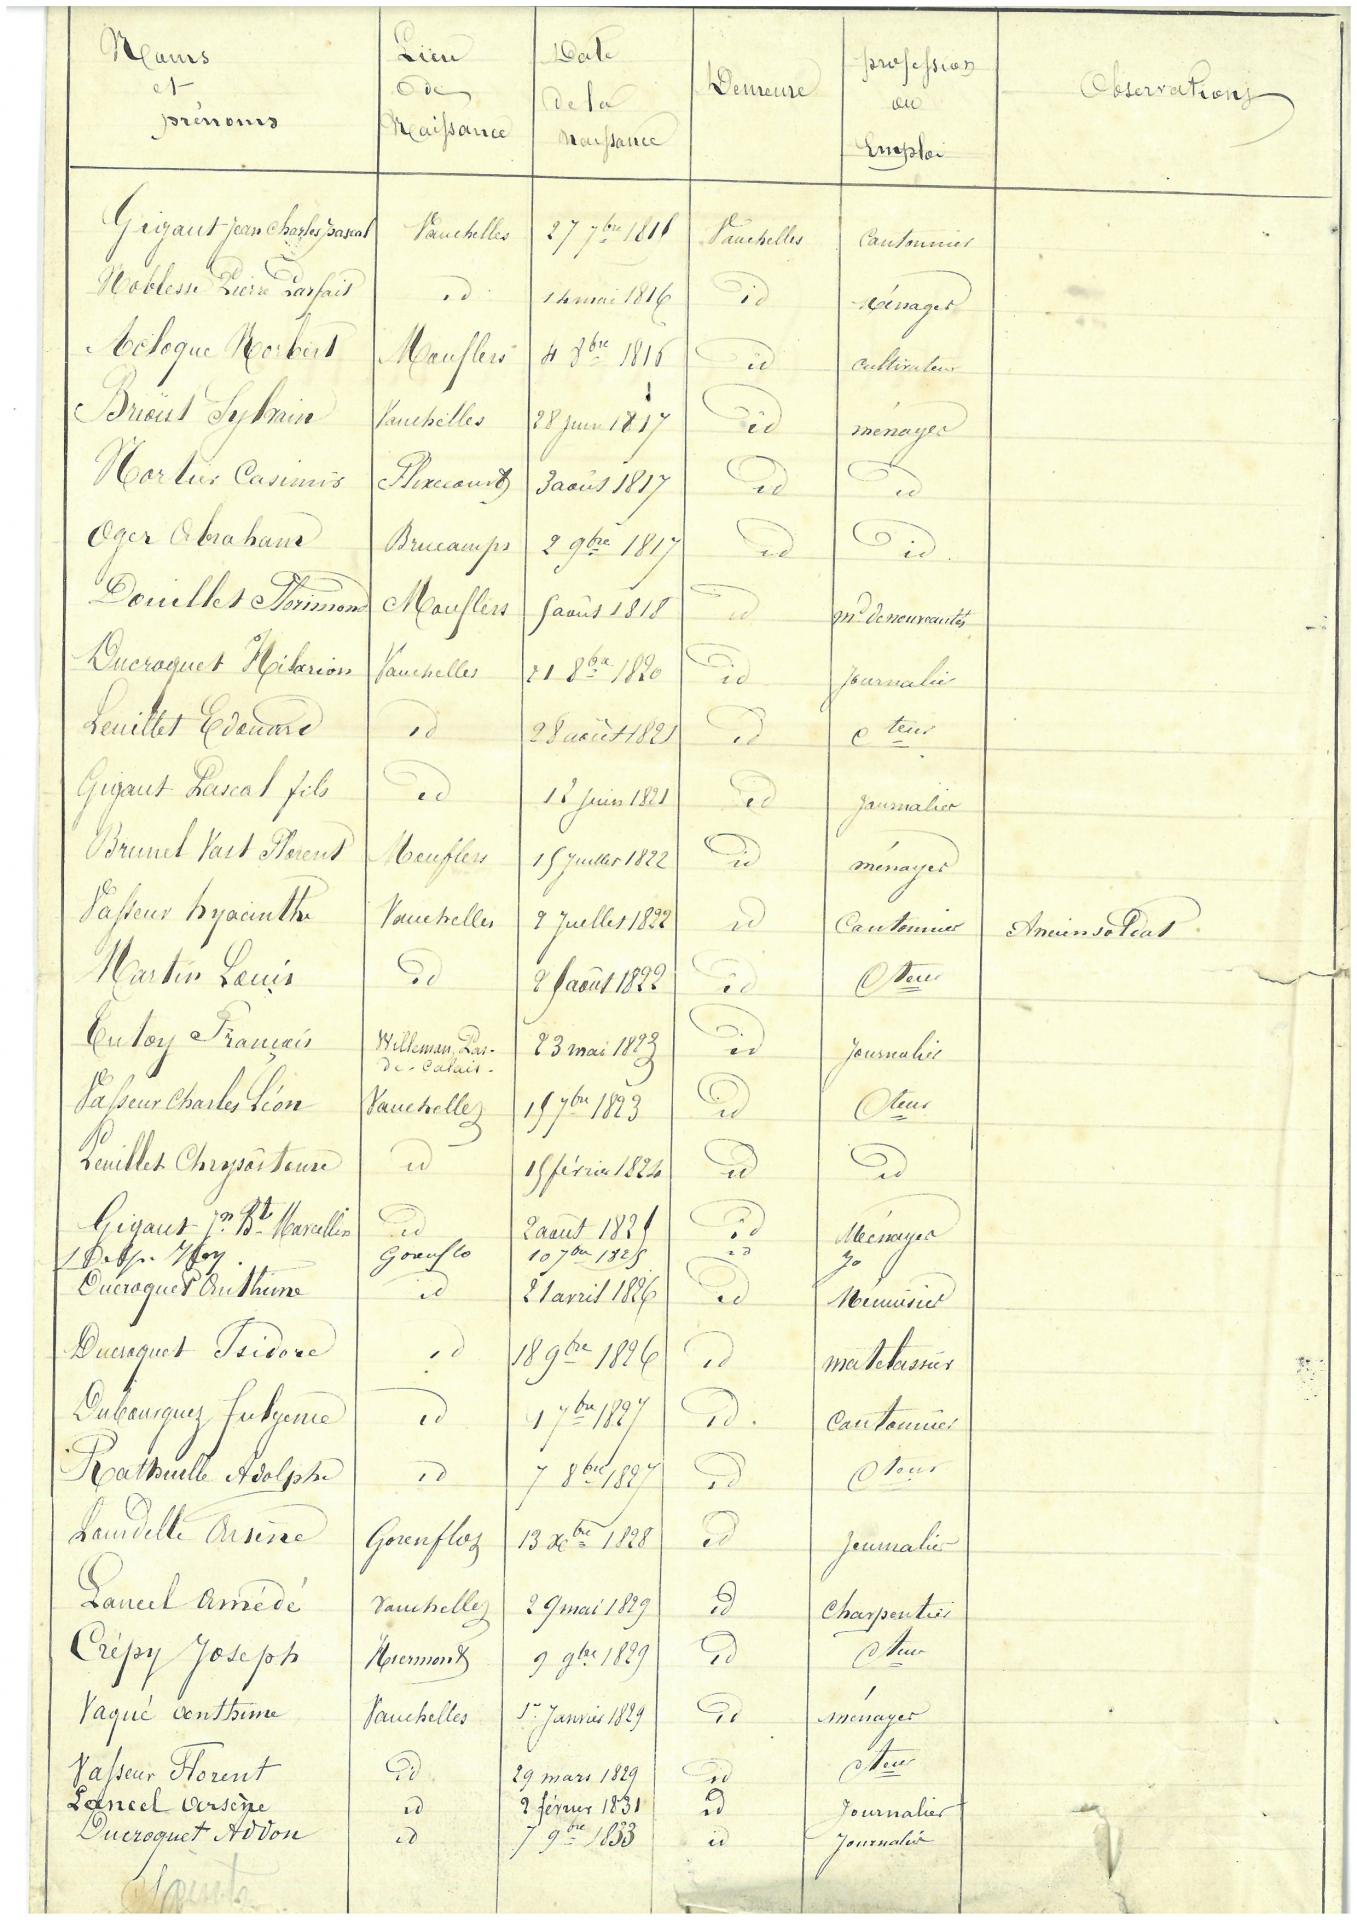 Noms et prénoms | Lieu de Naissance | Date de la naissance | Demeure | profession ou Emploi | Observations
Gigaut Jean Charles Pascal | Vauchelles | 27 7bre 1816 | Vauchelles | Cantonnier
Noblesse Pierre Parfait | id | 14 mai 1816 | id | Ménager
Acloque Norbert | Mouflers | 4 8bre 1816 | id | cultivateur
Briout Sylvain | Vauchelles | 28 Juin 1817 | id | ménager
Nortier Casimir | Flixecourt | 3 août 1817 | id | id
Oger Abraham | Brucamps | 2 9bre 1817 | id | id
Douillet Florimond | Mouflers | 5 août 1818 | id | md de nouveautés
Ducroquet Hilarion | Vauchelles | 21 8bre 1820 | id | Journalier
Leuillet Edouard | id | 28 août 1821 | id | Cteur
Gigaut Pascal fils | id | 12 Juin 1821 | id | Journalier
Brunel Vast Florent | Mouflers | 15 Juillet 1822 | id | ménager
Vasseur hyacinthe | Vauchelles | 2 Juillet 1822 | id | Cantonnier | Ancien soldat
Martin Louis | id | 25 août 1822 | id | Cteur
François | Willeman, Pas-de-Calais. | 23 mai 1823 | id | Journalier
Vasseur Charles Léon | Vauchelles | 15 7bre 1823 | id | Cteur
Leuillet Chrysostome | id | 15 février 1824 | id | id
Gigaut Jn Bte Marcellin | id | 2 août 1825 | id | Ménager
Gorenflo | 10 7bre 1825 | id | Jo
Ducroquet Anthime | id | 21 avril 1826 | id | Menuisier
Ducroquet Isidore | id | 18 9bre 1826 | id | matelassier
Dubourguez fulgence | id | 1 7bre 1827 | id | Cantonnier
Rathuille Adolphe | id | 7 8bre 1827 | id | Cteur
Lourdelle Arsène | Gorenflos | 13 Xbre 1828 | id | Journalier
Lancel Amédé | Vauchelles | 29 mai 1829 | id | Charpentier
Crépy Joseph | Hiermont | 9 9bre 1829 | id | Cteur
Vaqué Anthime | Vauchelles | 1r Janvier 1829 | id | ménager
Vasseur Florent | id | 29 mars 1829 | id | Cteur
Lancel Arsène | id | 2 février 1831 | id | Journalier
Ducroquet Addon | id | 7 9bre 1833 | id | Journalier